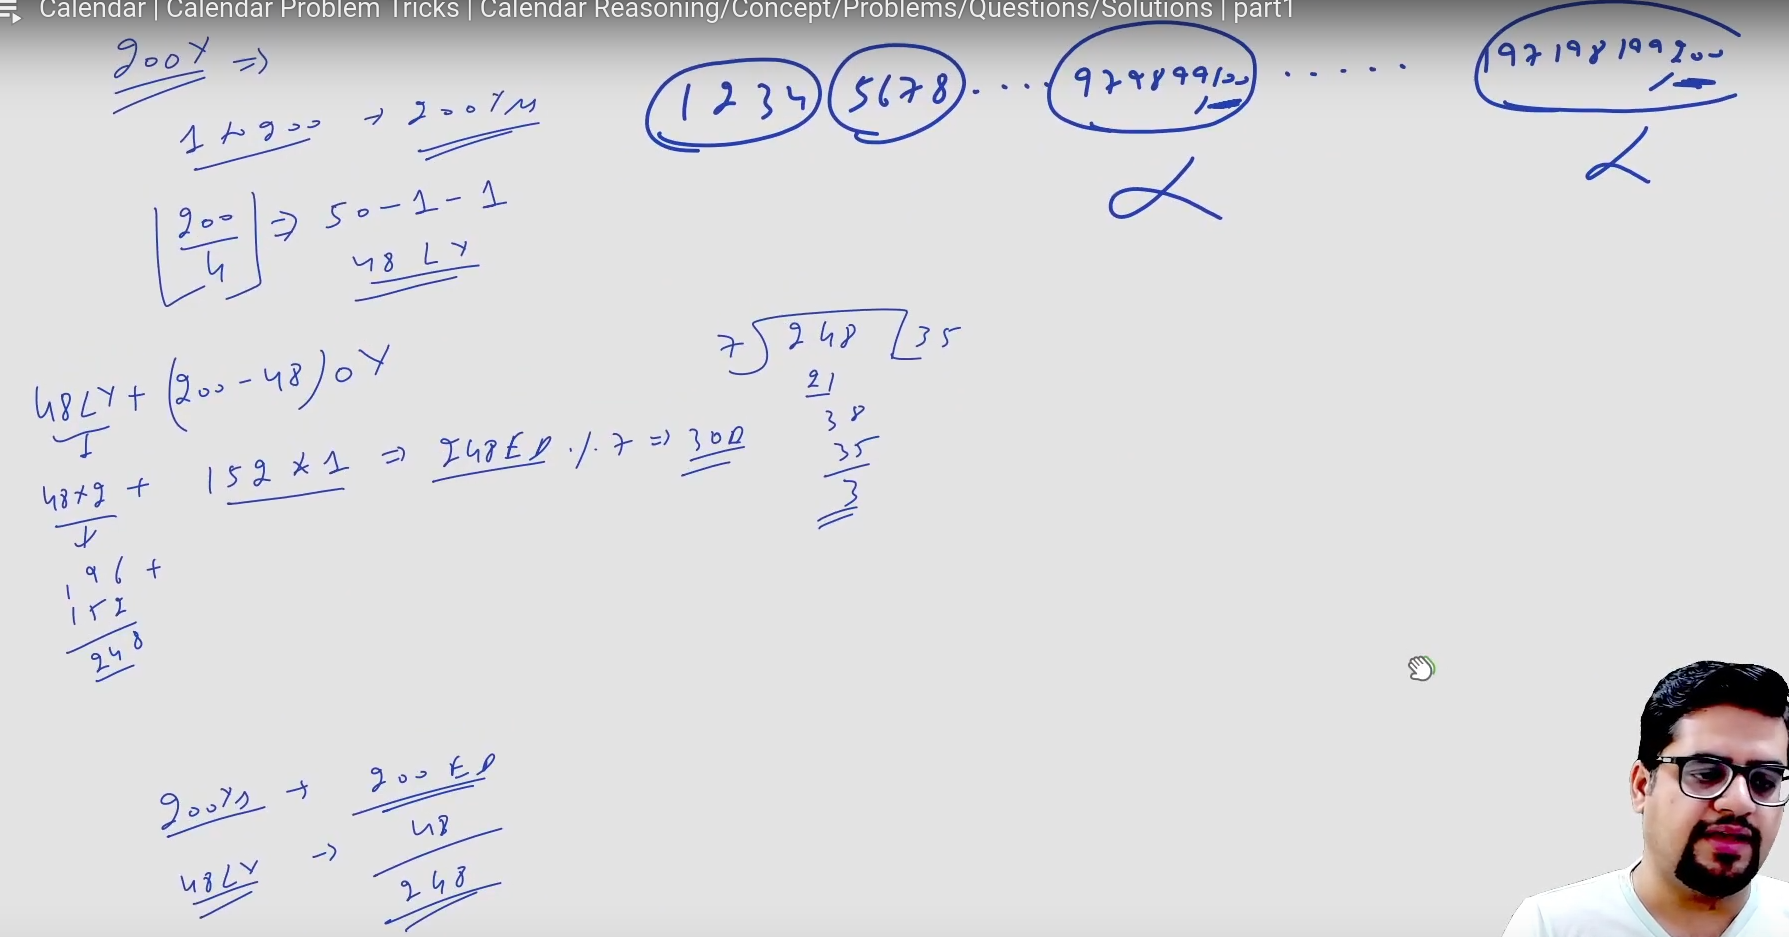 Calendar | Calendar Problem Tricks | Calendar Reasoning/Concept/Problems/Questions/Solutions | part1
200Y ⇒
1 to 200 → 200Yrs
[200/4] ⇒ 50-1-1
48 LY
1 2 3 4 5 6 7 8 .... 97 98 99 100 ...... 197 198 199 200
48LY + (200-48) OY
48×2 + 152 × 1 ⇒ 248ED % 7 ⇒ 3OD
96 +
152
248
7) 248 [35
21
38
35
3
200Ys → 200 ED
48LY → 48
248